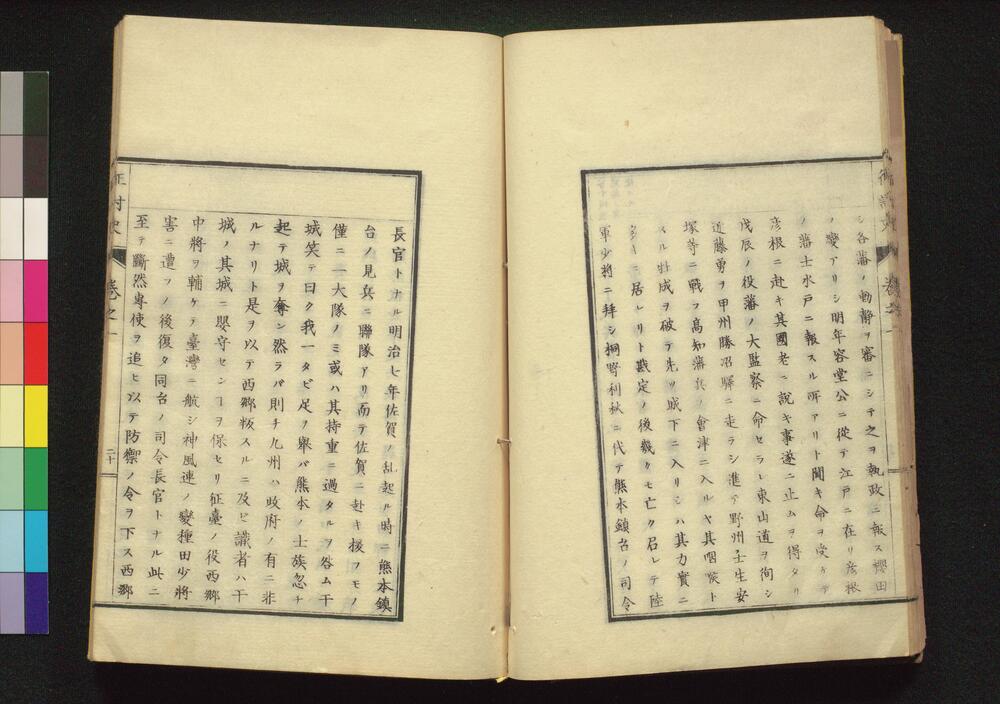 シ各藩ノ動静ヲ審ニシテ之ヲ執政ニ報ス櫻田
ノ變アリシ明年容堂公ニ從テ江戸ニ在リ彦根
ノ藩士水戸ニ報スル所アリト聞キ命ヲ受ケテ
彦根ニ赴キ其國老ニ説キ事遂ニ止ムヲ得タリ
戊辰ノ役藩ノ大監察ニ命セラレ東山道ヲ徇シ
近藤勇ヲ甲州勝沼驛ニ走ラシ進テ野州壬生安
塚等ニ戰フ高知藩兵ノ會津ニ入ルヤ其咽喉ト
スル牡成ヲ破テ先ツ城下ニ入リシハ其力實ニ
多キニ居レリト戡定ノ後幾クモ亡ク召レテ陸
軍少將ニ拜シ桐野利秋ニ代テ熊本鎮台ノ司令
長官トナル明治七年佐賀ノ乱起ル時ニ熊本鎮
台ノ見兵二聯隊アリ而テ佐賀ニ赴キ援フモノ
僅ニ一大隊ノミ或ハ其持重ニ過タルヲ咎ム干
城笑テ曰ク我一タビ足ヲ舉バ熊本ノ士族忽チ
起テ城ヲ奪ン然ラバ則チ九州ハ政府ノ有ニ非
ルナリト是ヲ以テ西郷叛スルニ及ビ識者ハ干
城ノ其城ニ嬰守センヿヲ保セリ征臺ノ役西郷
中將ヲ輔ケテ臺灣ニ航シ神風連ノ變種田少將
害ニ遭フノ後復タ同台ノ司令長官トナル此ニ
至テ斷然專使ヲ追ヒ以テ防禦ノ令ヲ下ス西郷
征討史
巻之一
二十